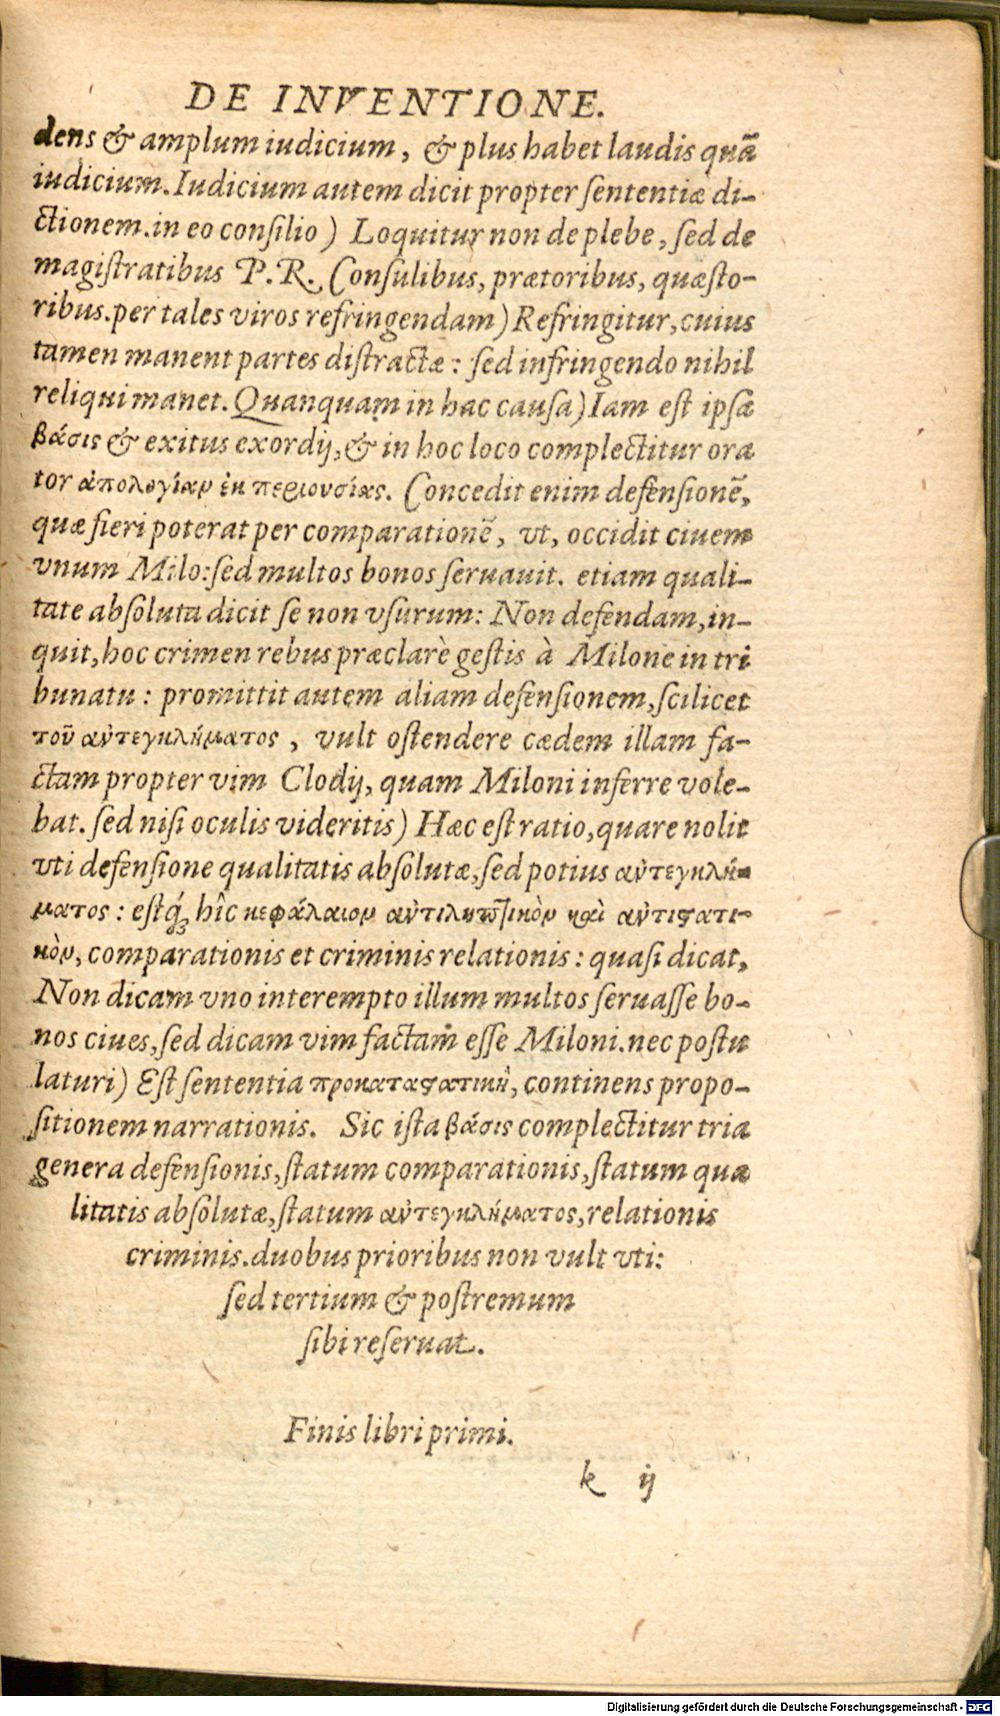 DE INVENTIONE.
dens & amplum iudicium, & plus habet laudis quã
iudicium. Iudicium autem dicit propter sententiæ di-
ctionem. in eo consilio) Loquitur non de plebe, sed de
magistratibus P. R. Consulibus, prætoribus, quæsto-
ribus. per tales viros refringendam) Refringitur, cuius
tamen manent partes distractæ: sed infringendo nihil
reliqui manet. Quanquam in hac causa) Iam est ipsa
βάσις & exitus exordij, & in hoc loco complectitur ora
tor ἀπολογίαν ἐκ περιουσίας. Concedit enim defensionẽ,
quæ fieri poterat per comparationẽ, vt, occidit ciuem
vnum Milo: sed multos bonos seruauit. etiam quali-
tate absoluta dicit se non vsurum: Non defendam, in-
quit, hoc crimen rebus præclarè gestis à Milone in tri
bunatu: promittit autem aliam defensionem, scilicet
τοῦ ἀντεγκλήματος, vult ostendere cædem illam fa-
ctam propter vim Clodij, quam Miloni inferre vole-
bat. sed nisi oculis videritis) Hæc est ratio, quare nolit
vti defensione qualitatis absolutæ, sed potius ἀντεγκλή-
ματος: estq́; hîc κεφάλαιον ἀντιληπτικὸν καὶ ἀντιστατι-
κὸν, comparationis et criminis relationis: quasi dicat,
Non dicam vno interempto illum multos seruasse bo-
nos ciues, sed dicam vim factam esse Miloni. nec postu
laturi) Est sententia προκαταστατικὴ, continens propo-
sitionem narrationis. Sic ista βάσις complectitur tria
genera defensionis, statum comparationis, statum qua
litatis absolutæ, statum ἀντεγκλήματος, relationis
criminis. duobus prioribus non vult vti:
sed tertium & postremum
sibi reseruat.
Finis libri primi.
k ij
Digitalisierung gefördert durch die Deutsche Forschungsgemeinschaft - DFG